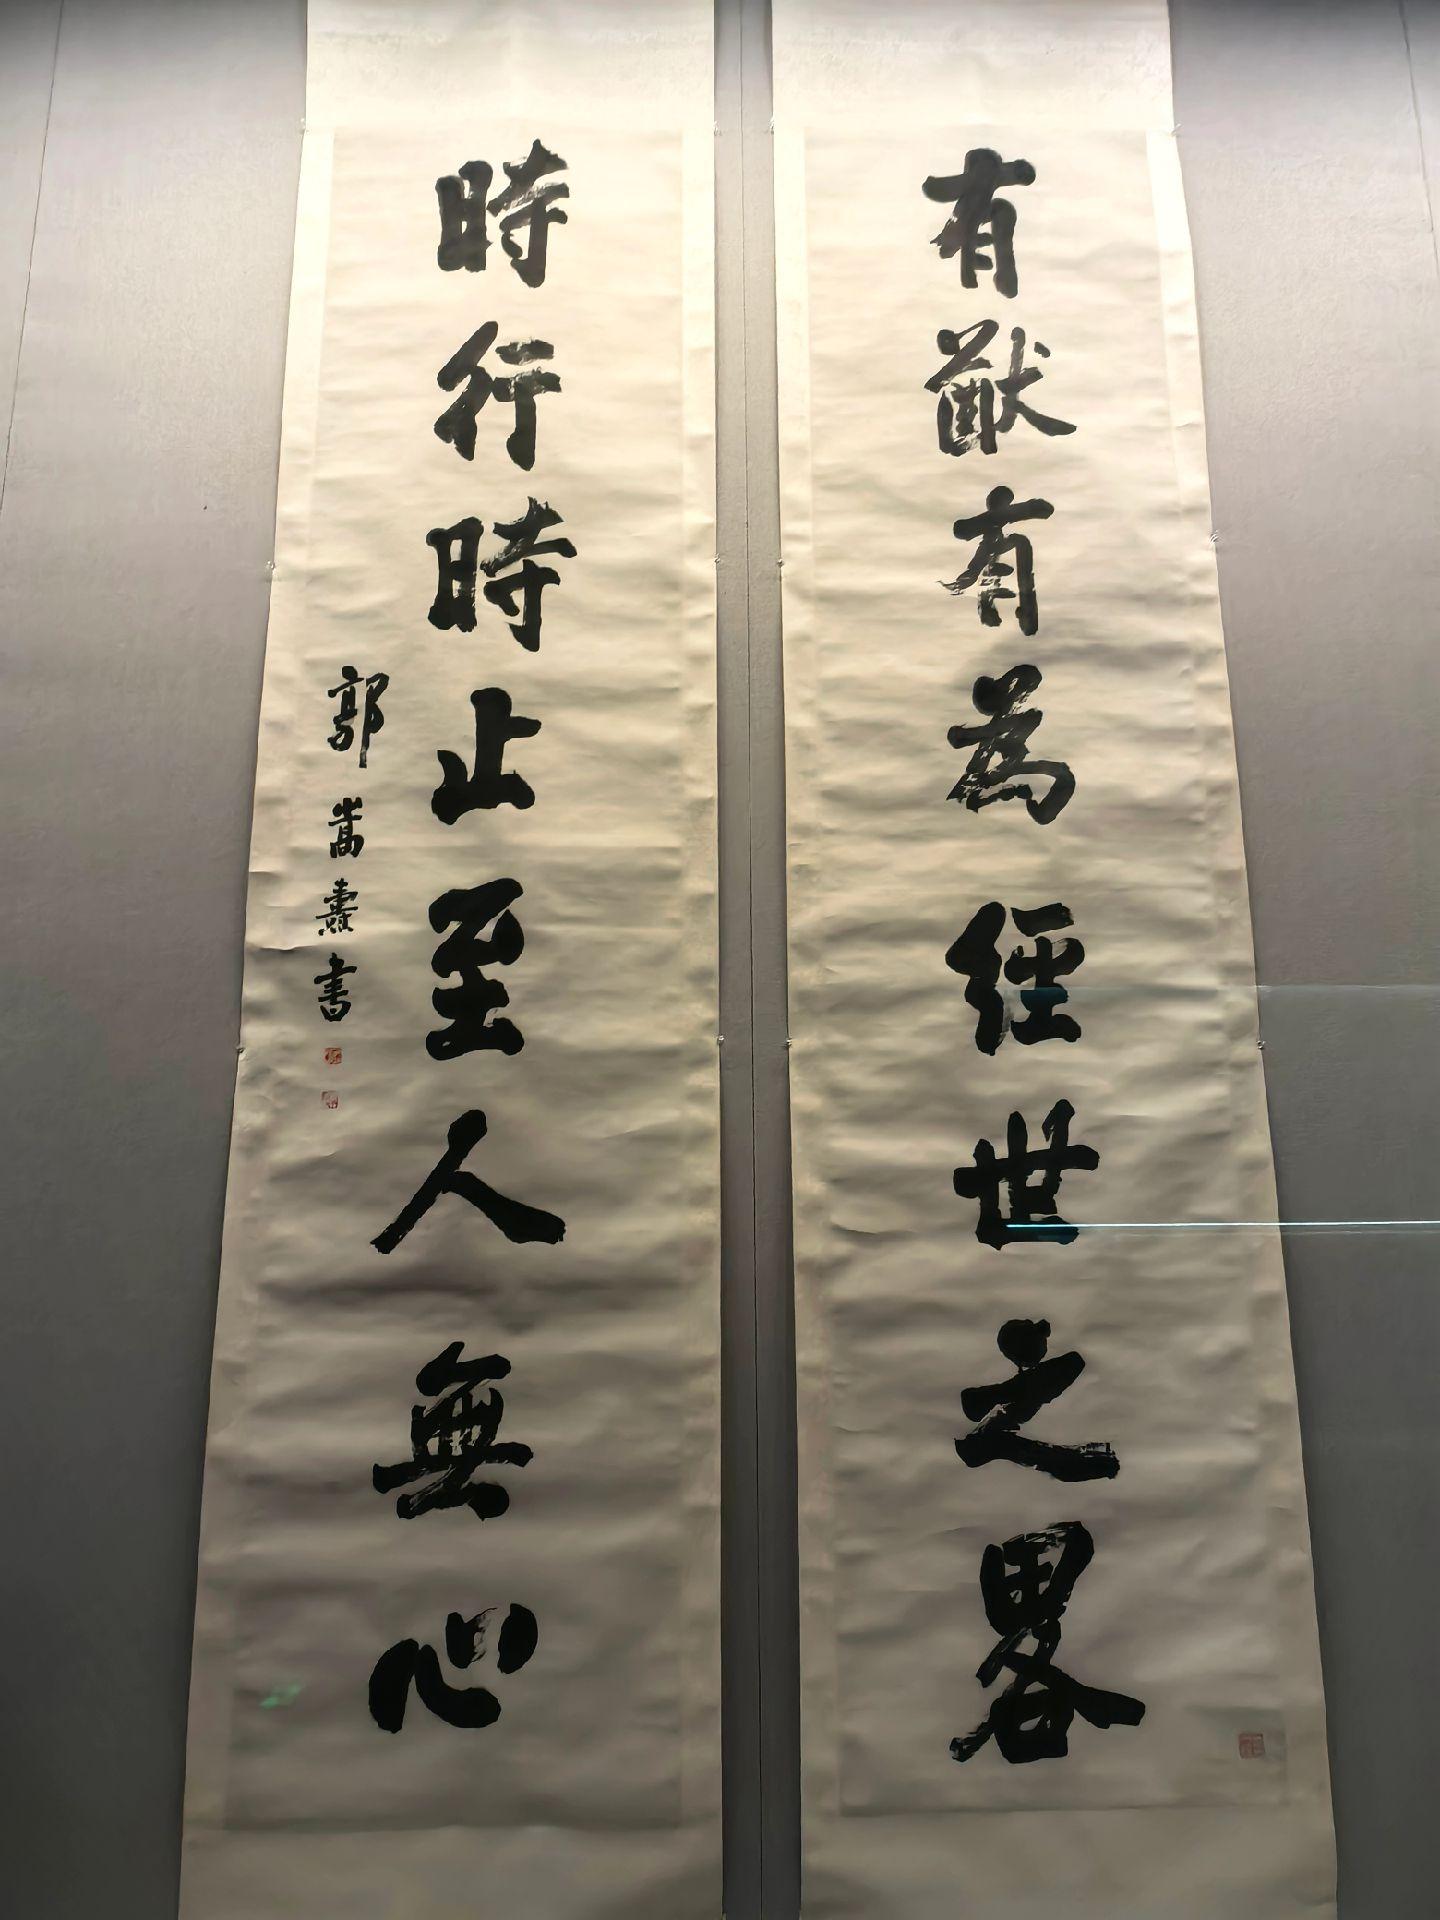 有猷有為經世之畧
時行時止至人無心
郭嵩燾書